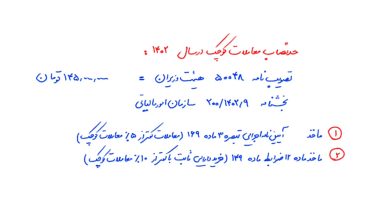 حدنصاب معاملات کوچک در سال ۱۴۰۲ :
تصویب نامه ۵۰۰۴۸ هیئت وزیران = ۱۴۵,۰۰۰,۰۰۰ تومان
بخشنامه ۲۰۰/۱۴۰۲/۹ سازمان امور مالیاتی
① ماخذ آیین نامه اجرایی تبصره ۳ ماده ۱۶۹ (معاملات کمتر از ۵% معاملات کوچک)
② ماخذ ماده ۱۲ ضرابط ماده ۱۴۹ (خرید دارایی ثابت با کمتر از ۱۰% معاملات کوچک)